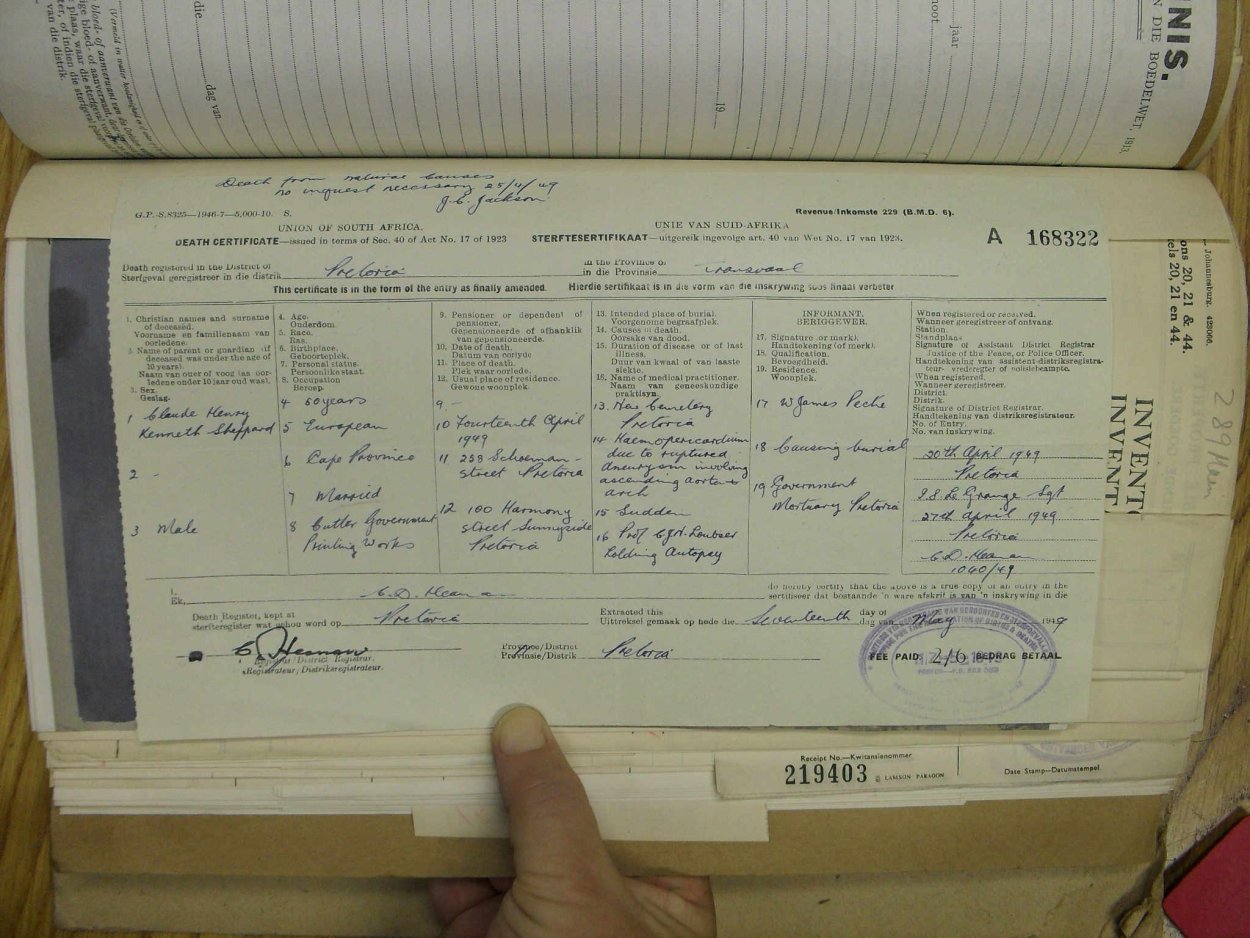 NIS.
N DIE BOEDELWET, 1913.
jaar
19
dag van
die
Death from natural causes
no inquest necessary 25/4/49
J.C. Jackson
G.P.-S.8325—1946-7—5,000-10. S.
Revenue/Inkomste 229 (B.M.D. 6).
UNION OF SOUTH AFRICA.
UNIE VAN SUID-AFRIKA
DEATH CERTIFICATE—issued in terms of Sec. 40 of Act No. 17 of 1923
STERFTESERTIFIKAAT—uitgereik ingevolge art. 40 van Wet No. 17 van 1923.
A 168322
Death registered in the District of
Sterfgeval geregistreer in die distrik Pretoria
in the Province of
in die Provinsie Transvaal
This certificate is in the form of the entry as finally amended. Hierdie sertifikaat is in die vorm van die inskrywing soos finaal verbeter
1. Christian names and surname
of deceased.
Voorname en familienaam van
oorledene.
2. Name of parent or guardian (if
deceased was under the age of
10 years).
Naam van ouer of voog (as oor-
ledene onder 10 jaar oud was).
3. Sex.
Geslag.
1 Claude Henry
Kenneth Sheppard
2 -
3 Male
4. Age.
Ouderdom.
5. Race.
Ras.
6. Birthplace.
Geboorteplek.
7. Personal status.
Persoonlike staat.
8. Occupation
Beroep.
4 50 years
5 European
6 Cape Province
7 Married
8 Cutler Government
Printing Works
9. Pensioner or dependent of
pensioner.
Gepensioneerde of afhanklik
van gepensioneerde.
10. Date of death.
Datum van oorlyde
11. Place of death.
Plek waar oorlede.
12. Usual place of residence.
Gewone woonplek.
9. -
10 Fourteenth April
1949
11 258 Schoeman-
street Pretoria
12 100 Harmony
street Sunnyside
Pretoria
13. Intended place of burial.
Voorgenome begraafplek.
14. Causes of death.
Oorsake van dood.
15. Duration of disease or of last
illness.
Duur van kwaal of van laaste
siekte.
16. Name of medical practitioner.
Naam van geneeskundige
praktisyn.
13. New Cemetery
Pretoria
14 Haemopericardium
due to ruptured
aneurysm involving
ascending aorta &
arch
15 Sudden
16 Prof C.G.N. Loubser
holding Autopsy
INFORMANT.
BERIGGEWER.
17. Signature (or mark).
Handtekening (of merk).
18. Qualification.
Bevoegdheid.
19. Residence.
Woonplek.
17 W James Peche
18 Causing burial
19 Government
Mortuary Pretoria
When registered or received.
Wanneer geregistreer of ontvang.
Station.
Standplaas
Signature of Assistant District Registrar
Justice of the Peace, or Police Officer.
Handtekening van assistent-distriksregistra-
teur- vrederegter of polisiebampte.
When registered.
Wanneer geregistreer.
District.
Distrik.
Signature of District Registrar.
Handtekening van distriksregistrateur.
No. of Entry.
No. van inskrywing.
20th April 1949
Pretoria
Le Grange Sgt
27th April 1949
Pretoria
C.D. Hesman
1040/49
I,
Ek, C.D. Hesman
do hereby certify that the above is a true copy of an entry in the
sertifiseer dat bostaande 'n ware afskrif is van 'n inskrywing in die
Death Register, kept at
sterfteregister wat gehou word op Pretoria
Extracted this
Uittreksel gemaak op hede die Seventeenth
day of
dag van May 1949
Registrar/District Registrar.
Registrateur/Distriksregistrateur.
Province/District
Provinsie/Distrik Pretoria
FEE PAID 2/6 BEDRAG BETAAL
Receipt No.—Kwitansienommer
219403
LAMSON PARAGON
Date Stamp—Datumstempel.
Johannesburg. 423066.
ons 20, 21 & 44.
els 20, 21 en 44.
INVENT
INVENT